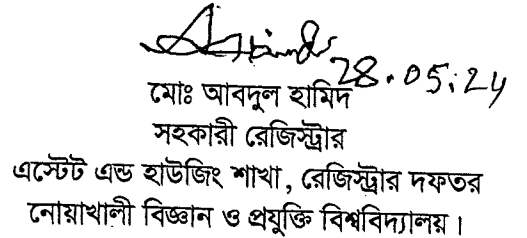 28.05.24
মোঃ আবদুল হামিদ
সহকারী রেজিস্ট্রার
এস্টেট এন্ড হাউজিং শাখা, রেজিস্ট্রার দফতর
নোয়াখালী বিজ্ঞান ও প্রযুক্তি বিশ্ববিদ্যালয়।